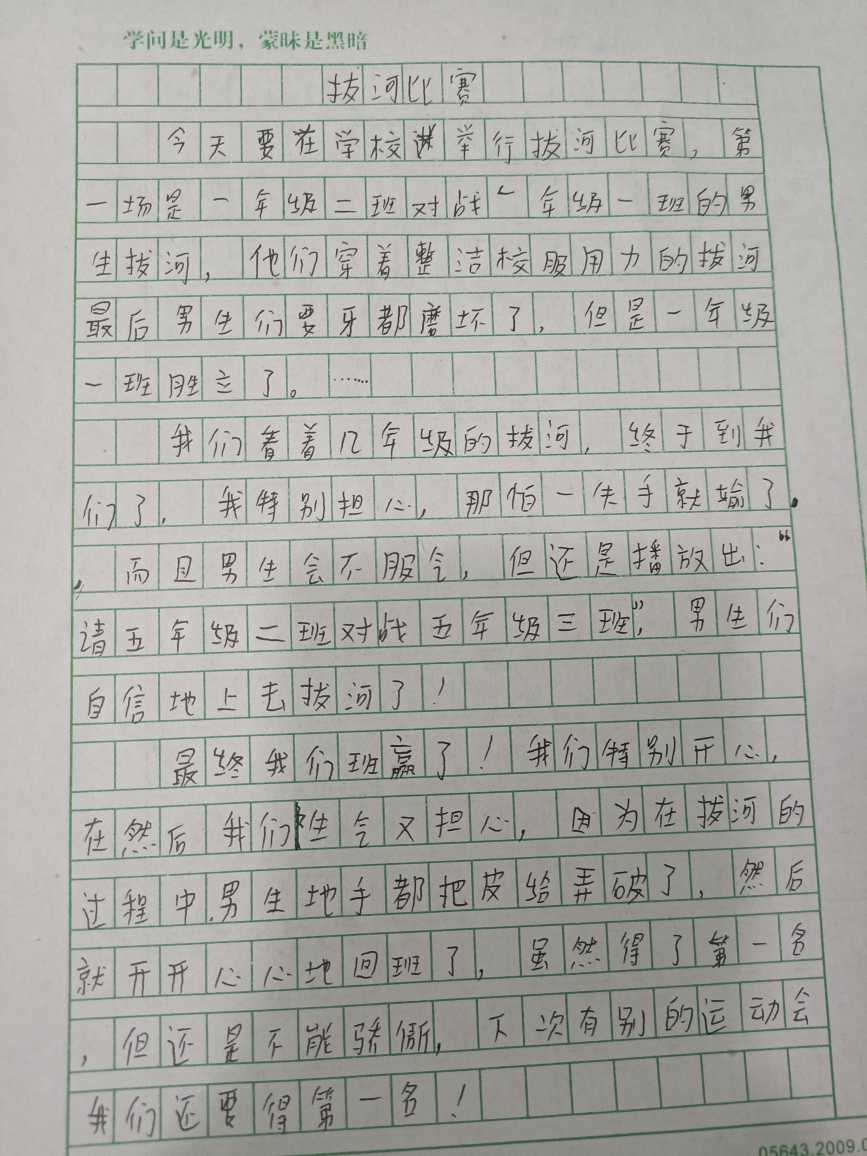 学问是光明，蒙昧是黑暗
拔河比赛
今天要在学校举行拔河比赛，第
一场是一年级二班对战一年级一班的男
生拔河，他们穿着整洁校服用力的拔河
最后男生们要牙都磨坏了，但是一年级
一班胜立了。……
我们看着几年级的拔河，终于到我
们了，我特别担心，那怕一失手就输了
，而且男生会不服气，但还是播放出：“
请五年级二班对战五年级三班”，男生们
自信地上去拔河了！
最终我们班赢了！我们特别开心，
在然后我们生气又担心，因为在拔河的
过程中，男生地手都把皮给弄破了，然后
就开开心心地回班了，虽然得了第一名
，但还是不能骄傲，下次有别的运动会
我们还要得第一名！
05643.2009.0